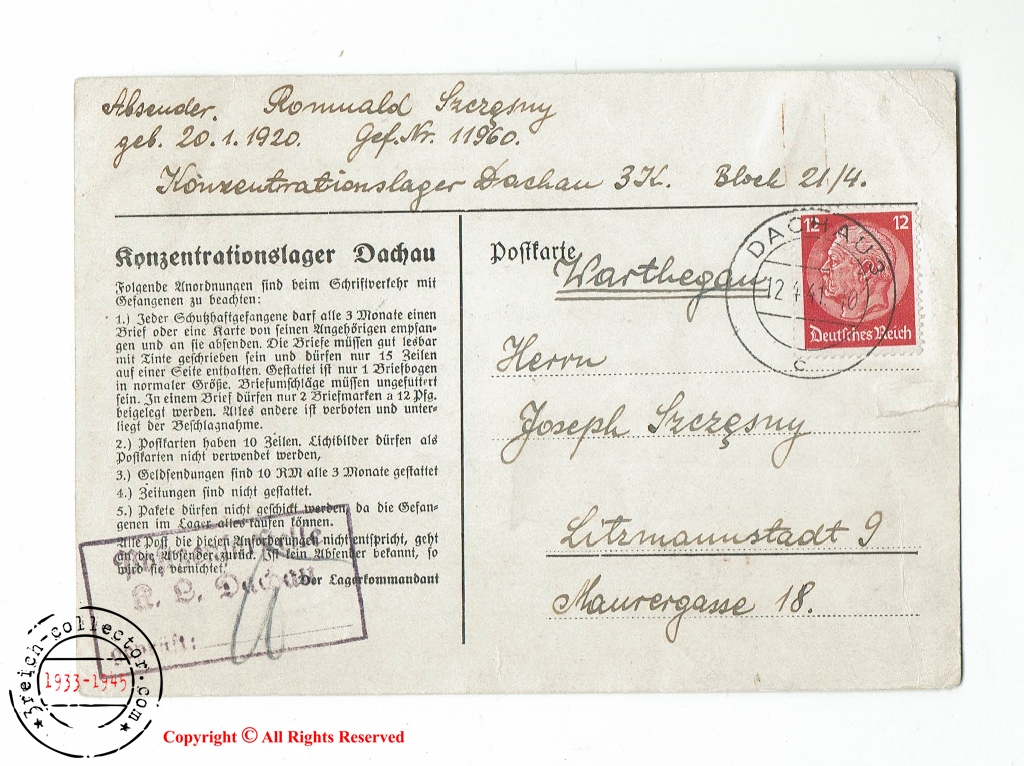 Absender. Romuald Szczęsny
geb. 20.1.1920. Gef. Nr. 11960.
Konzentrationslager Dachau 3K. Block 21/4.
Konzentrationslager Dachau
Folgende Anordnungen sind beim Schriftverkehr mit
Gefangenen zu beachten:
1.) Jeder Schutzhaftgefangene darf alle 3 Monate einen
Brief oder eine Karte von seinen Angehörigen empfan-
gen und an sie absenden. Die Briefe müssen gut lesbar
mit Tinte geschrieben sein und dürfen nur 15 Zeilen
auf einer Seite enthalten. Gestattet ist nur 1 Briefbogen
in normaler Größe. Briefumschläge müssen ungefüttert
sein. In einem Brief dürfen nur 2 Briefmarken a 12 Pfg.
beigelegt werden. Alles andere ist verboten und unter-
liegt der Beschlagnahme.
2.) Postkarten haben 10 Zeilen. Lichtbilder dürfen als
Postkarten nicht verwendet werden,
3.) Geldsendungen sind 10 RM alle 3 Monate gestattet
4.) Zeitungen sind nicht gestattet.
5.) Pakete dürfen nicht geschickt werden, da die Gefan-
genen im Lager alles kaufen können.
Alle Post, die diesen Anforderungen nicht entspricht, geht
an die Absender zurück. Ist kein Absender bekannt, so
wird sie vernichtet.
Der Lagerkommandant
K. L. Dachau
Postkarte
Warthegau
DACHAU 3
12.4.41
c
12 12
Deutsches Reich
Herrn
Joseph Szczęsny
Litzmannstadt 9
Maurergasse 18.
3reich-collector.com
1933-1945
Copyright © All Rights Reserved